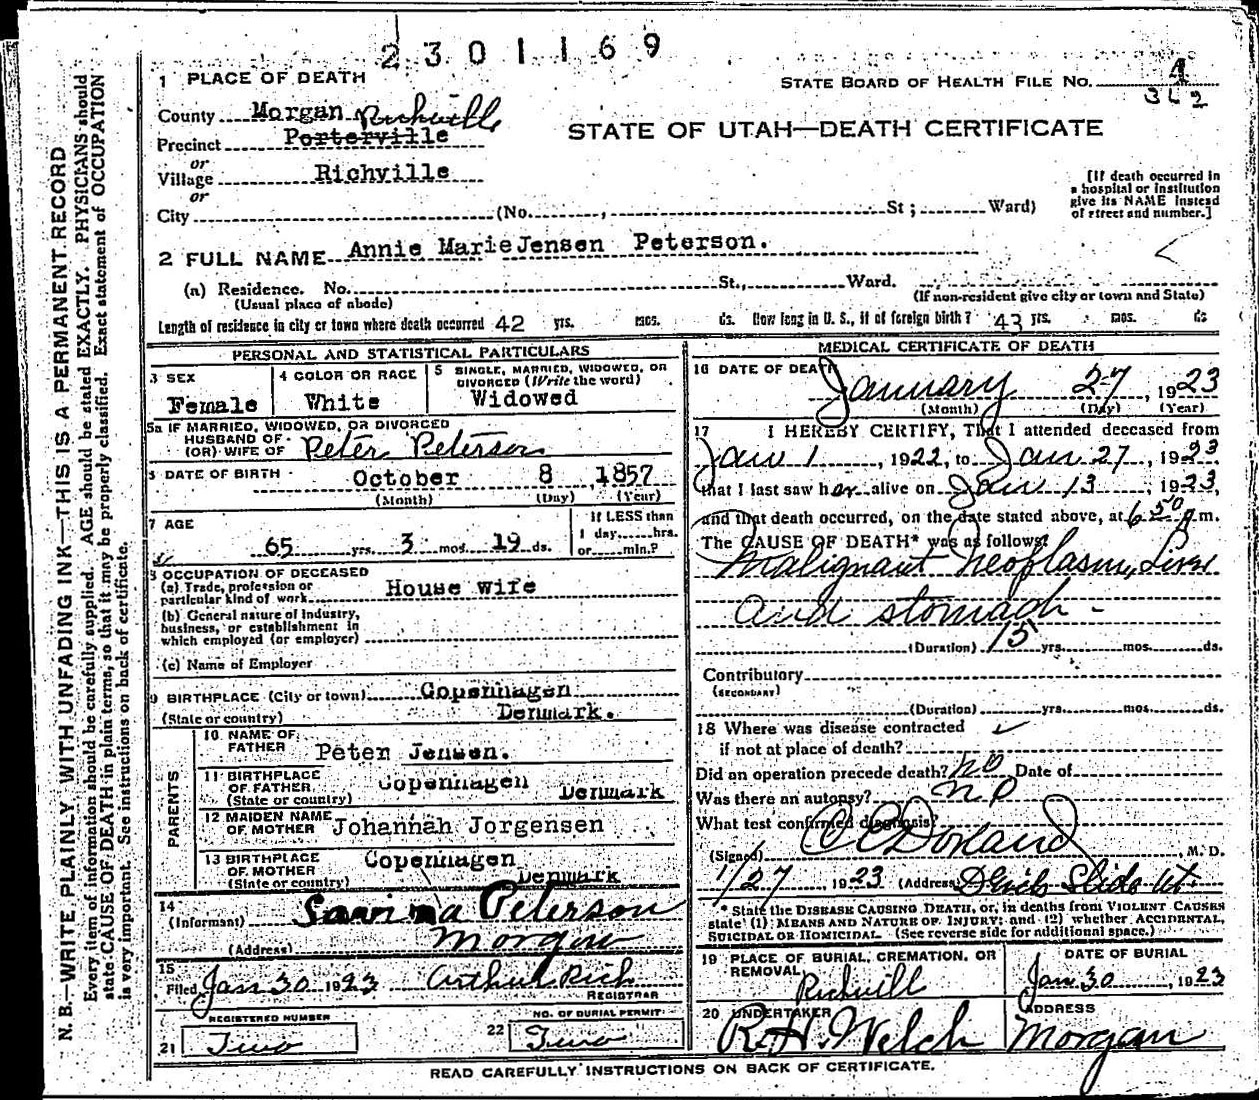 2301169
1 PLACE OF DEATH
STATE BOARD OF HEALTH FILE NO. 4
362
County Morgan Richville
STATE OF UTAH—DEATH CERTIFICATE
Precinct Porterville
or
Village Richville
or
City (No. , St ; Ward)
[If death occurred in
a hospital or institution
give its NAME instead
of street and number.]
2 FULL NAME Annie Marie Jensen Peterson.
(a) Residence. No. St., Ward.
(Usual place of abode)
(If non-resident give city or town and State)
Length of residence in city or town where death occurred 42 yrs. mos. ds. How long in U. S., if of foreign birth? 43 yrs. mos. ds
PERSONAL AND STATISTICAL PARTICULARS
3 SEX
Female
4 COLOR OR RACE
White
5 SINGLE, MARRIED, WIDOWED, OR
DIVORCED (Write the word)
Widowed
5a IF MARRIED, WIDOWED, OR DIVORCED
HUSBAND OF
(OR) WIFE OF Peter Peterson
6 DATE OF BIRTH
October 8 1857
(Month) (Day) (Year)
7 AGE
65 yrs. 3 mos 19 ds.
If LESS than
1 day hrs.
or min.?
8 OCCUPATION OF DECEASED
(a) Trade, profession or
particular kind of work House wife
(b) General nature of industry,
business, or establishment in
which employed (or employer)
(c) Name of Employer
9 BIRTHPLACE (City or town) Copenhagen
(State or country) Denmark.
PARENTS
10 NAME OF
FATHER Peter Jensen.
11 BIRTHPLACE
OF FATHER Copenhagen
(State or country) Denmark
12 MAIDEN NAME
OF MOTHER Johannah Jorgensen
13 BIRTHPLACE
OF MOTHER Copenhagen
(State or country) Denmark
14
(Informant) Peterson
(Address) Morgan
15
Filed Jan 30 1923 Arthur Rich
REGISTRAR
REGISTERED NUMBER
21 Two
NO. OF BURIAL PERMIT
22 Two
MEDICAL CERTIFICATE OF DEATH
16 DATE OF DEATH
January 27, 1923
(Month) (Day) (Year)
17 I HEREBY CERTIFY, That I attended deceased from
Jan 1, 1922, to Jan 27, 1923
that I last saw her alive on Jan 13, 1923,
and that death occurred, on the date stated above, at 6 50 m.
The CAUSE OF DEATH* was as follows:
Malignant Neoplasm, Liver
and stomach -
(Duration) 15 yrs. mos. ds.
Contributory
(SECONDARY)
(Duration) yrs. mos. ds.
18 Where was disease contracted
if not at place of death?
Did an operation precede death? no Date of
Was there an autopsy? no
What test confirmed diagnosis?
(Signed) M. D.
1/27, 1923 (Address) Devils Slide Ut.
* State the DISEASE CAUSING DEATH, or, in deaths from VIOLENT CAUSES
state (1) MEANS AND NATURE OF INJURY; and (2) whether ACCIDENTAL,
SUICIDAL OR HOMICIDAL. (See reverse side for additional space.)
19 PLACE OF BURIAL, CREMATION, OR
REMOVAL
Richvill
DATE OF BURIAL
Jan 30, 1923
20 UNDERTAKER
R. H. Welch
ADDRESS
Morgan
READ CAREFULLY INSTRUCTIONS ON BACK OF CERTIFICATE.
N. B.—WRITE PLAINLY WITH UNFADING INK—THIS IS A PERMANENT RECORD
Every item of information should be carefully supplied. AGE should be stated EXACTLY. PHYSICIANS should
state CAUSE OF DEATH in plain terms, so that it may be properly classified. Exact statement of OCCUPATION
is very important. See instructions on back of certificate.